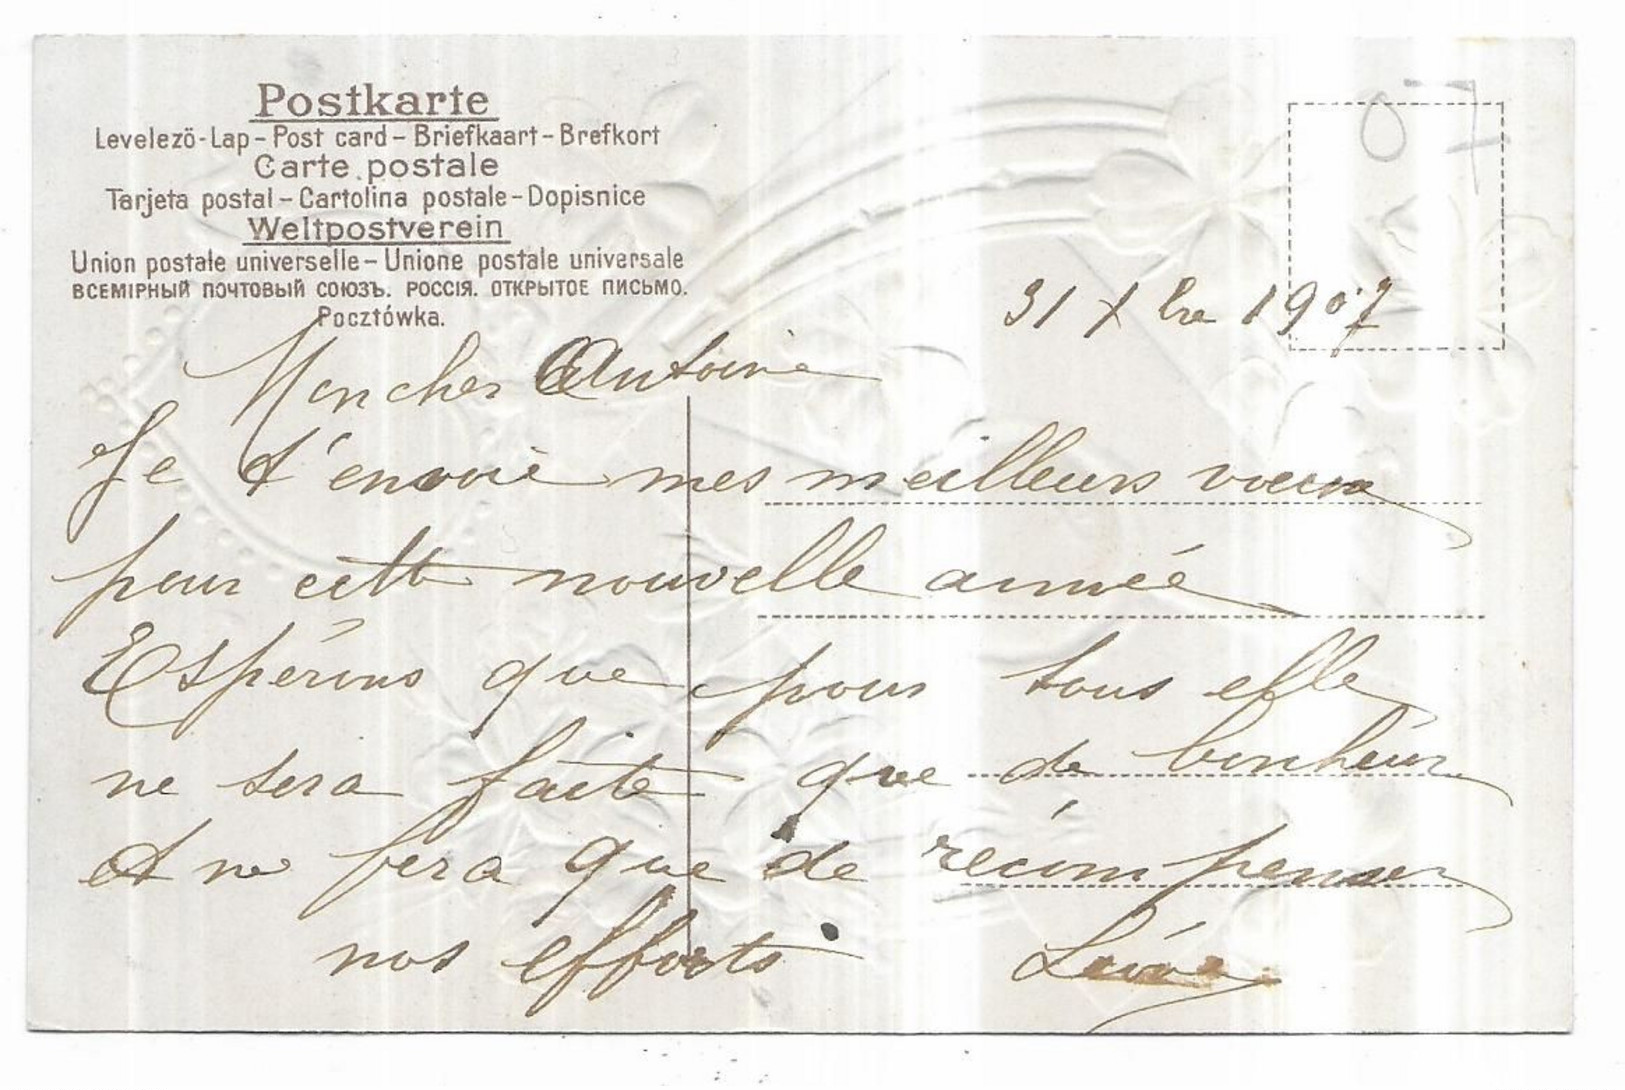 Postkarte
Levelező-Lap – Post card – Briefkaart – Brefkort
Carte postale
Tarjeta postal – Cartolina postale – Dopisnice
Weltpostverein
Union postale universelle – Unione postale universale
ВСЕМІРНЫЙ ПОЧТОВЫЙ СОЮЗЪ. РОССІЯ. ОТКРЫТОЕ ПИСЬМО.
Pocztówka.
07
31 Xbre 1907
Mon cher Antoine
Je t'envoie mes meilleurs voeux
pour cette nouvelle année
Espérons que pour tous elle
ne sera faite que de bonheur
et ne fera que de récompenser
nos efforts